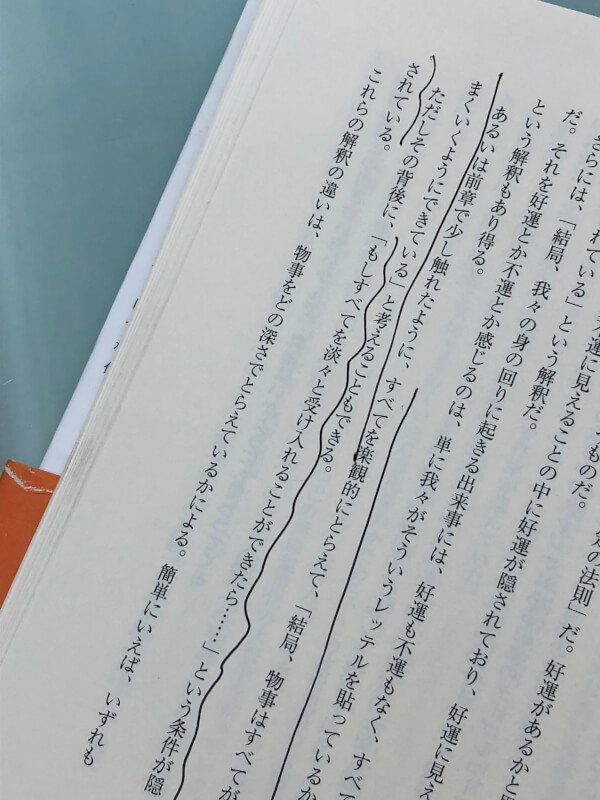 の法則」だ。好運があるかと
つものだ。
不運に見えることの中に好運が隠されており、好運に見え
れている」という解釈だ。
さらには、「結局、我々の身の回りに起きる出来事には、好運も不運もなく、すべ
だ。それを好運とか不運とか感じるのは、単に我々がそういうレッテルを貼っているか
という解釈もあり得る。
あるいは前章で少し触れたように、すべてを楽観的にとらえて、「結局、物事はすべてが
まくいくようにできている」と考えることもできる。
ただしその背後に、「もしすべてを淡々と受け入れることができたら……」という条件が隠
されている。
これらの解釈の違いは、物事をどの深さでとらえているかによる。簡単にいえば、いずれも